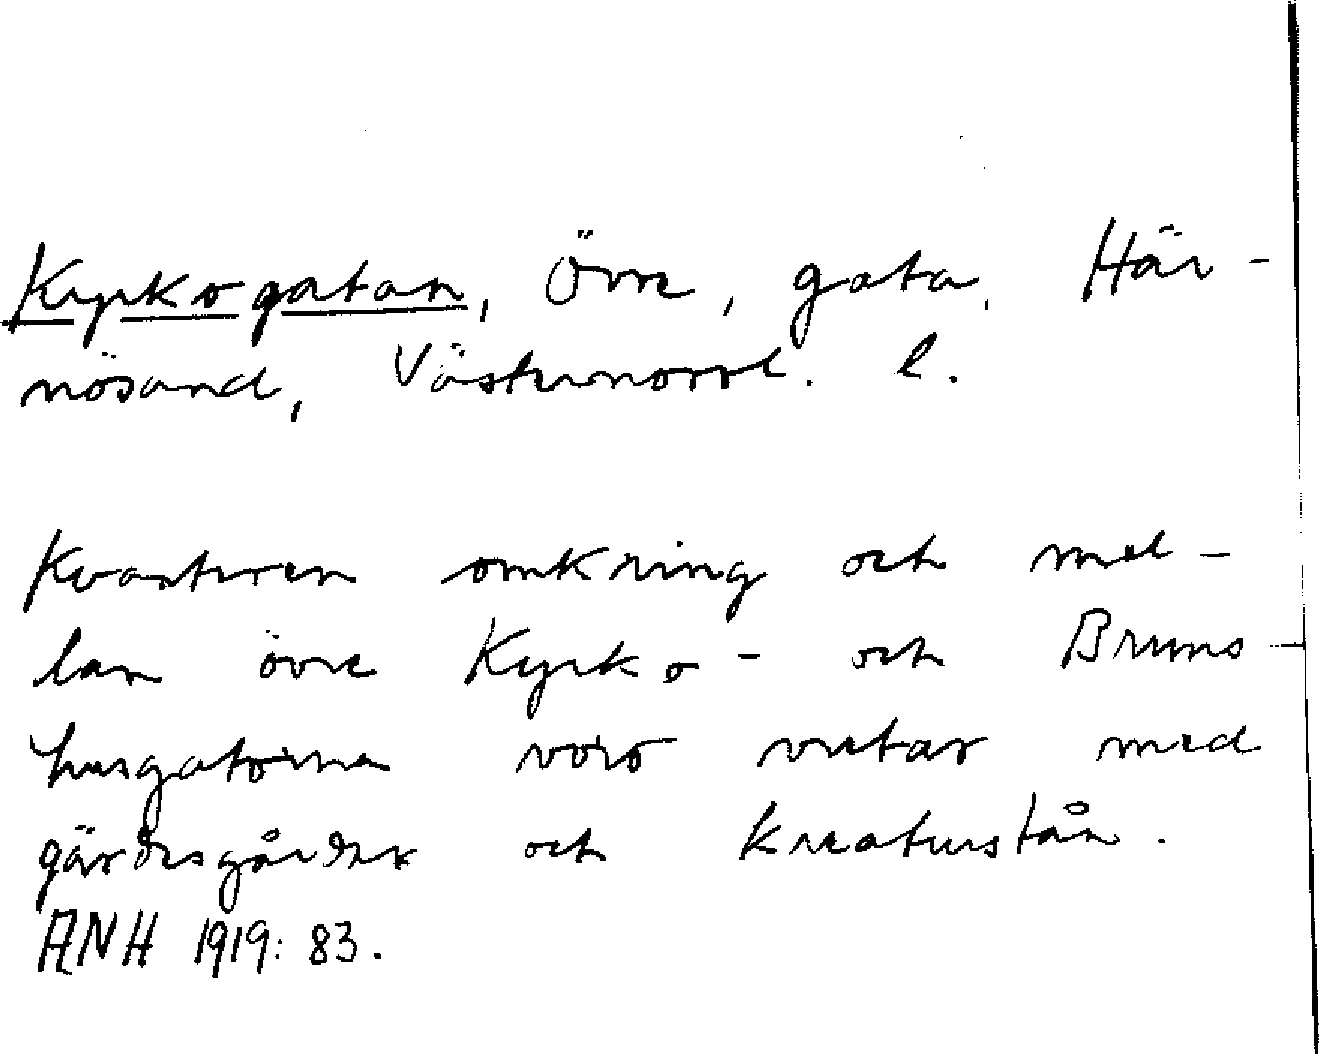 Kyrkogatan, Övre, gata, Här-
nösand, Västernorrl. l.
Kvarteren omkring och mel-
lan övre Kyrko- och Bruns-
husgatorna voro vretar med
gärdesgårdar och kreaturstån.
ANH 1919: 83.